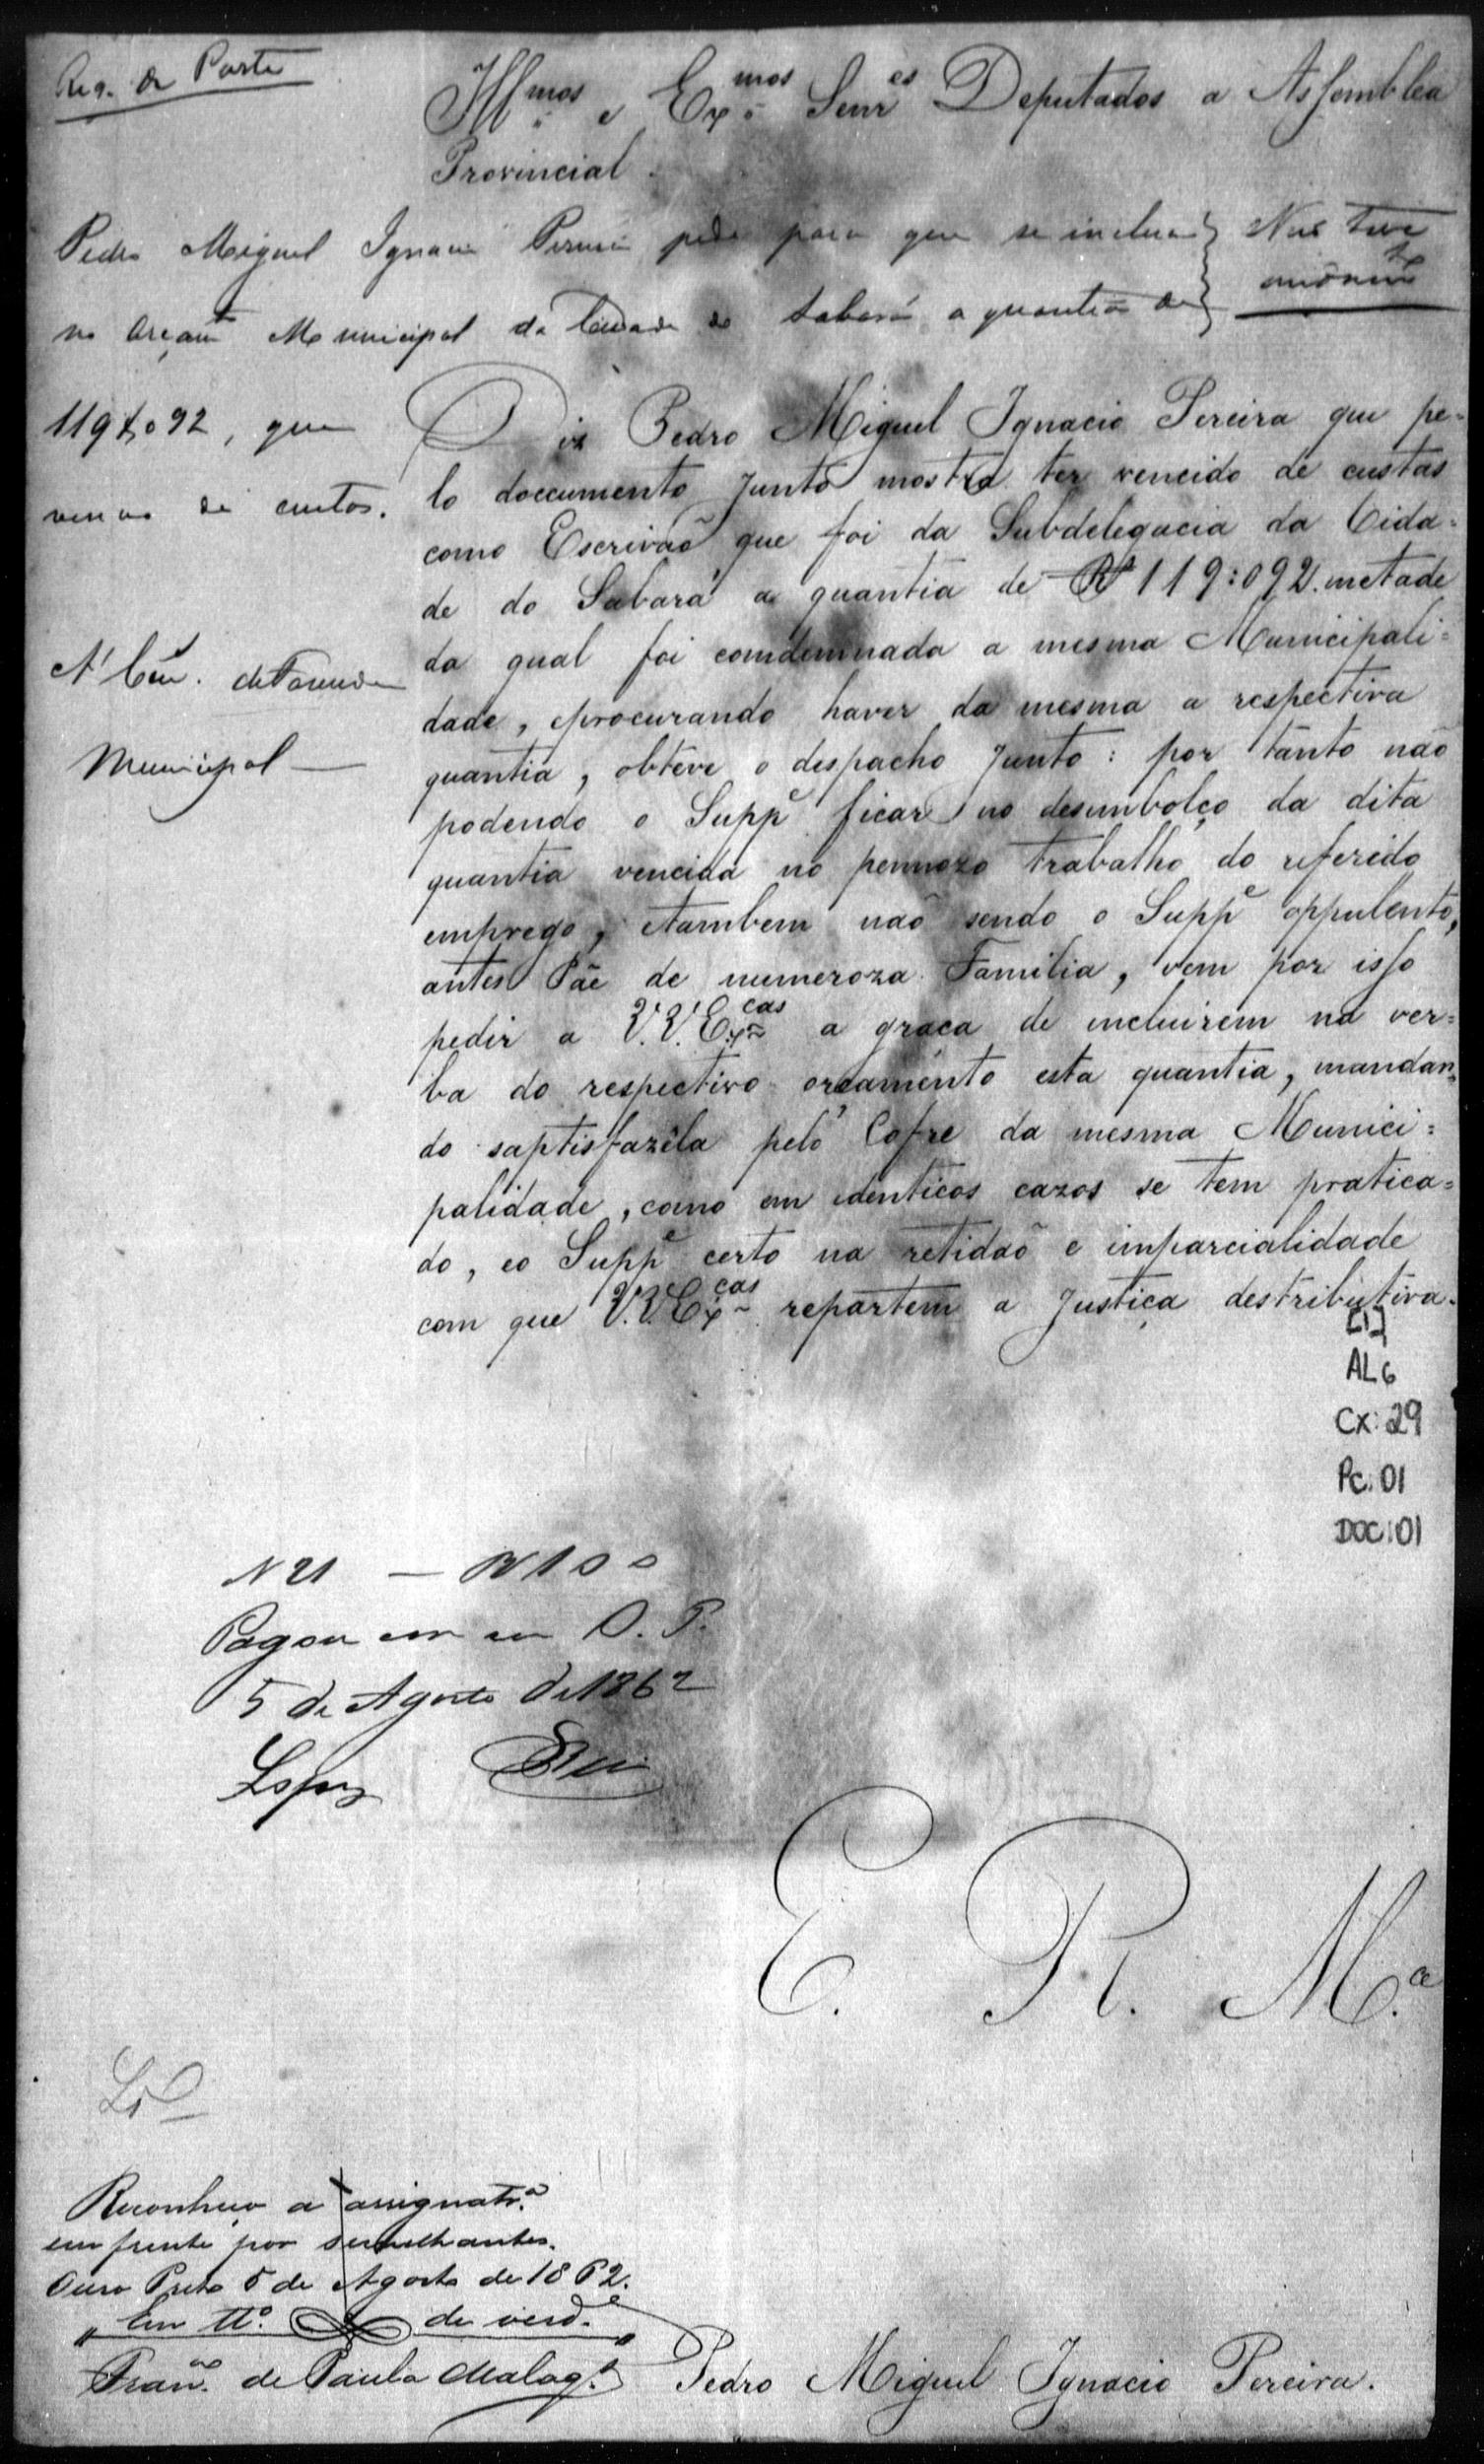 Req. de Parte
Ill.mos e Ex.mos Senr.es Deputados a Assemblea
Provincial.
Pedro Miguel Ignacio Pereira pede para que se inclua
no Orçam.to Municipal da Cidade de Sabará a quantia de
Não teve
119$092, que
venceo de custas.
A' Com. de Fazenda
Municipal
Diz Pedro Miguel Ignacio Pereira que pe=
lo doccumento junto mostra ter vencido de custas
como Escrivaõ que foi da Subdelegacia da Cida=
de do Sabará a quantia de Rs 119:092. metade
da qual foi comdemnada a mesma Municipali=
dade, eprocurando haver da mesma a respectiva
quantia, obteve o despacho junto: por tanto naõ
podendo o Supp.e ficar no desimbolço da dita
quantia vencida no pennozo trabalho do referido
emprego, etambem naõ sendo o Supp.e oppulento,
antes Pãe de numeroza Familia, vem por isso
pedir a V.V. Ex.cas a graca de incluirem na ver=
ba do respectivo orçamento esta quantia, mandan=
do saptisfazêla pelo Cofre da mesma Munici=
palidade, como em identicos cazos se tem pratica=
do, eo Supp.e certo na retidaõ e imparcialidade
com que V.V. Ex.cas repartem a Justiça destributiva.
[1]
AL6
CX: 29
Pc: 01
DOC: 01
N 21 —
Pagou O. P.
5 de Agosto de 1862
Lopes
E. R. M.ce
Reconheço a assignatr.a
em frente por semelhantes.
Ouro Preto 5 de Agosto de 1862.
Em tt.o de verd.e
Fran.co de Paula Malag.
Pedro Miguel Ignacio Pereira.